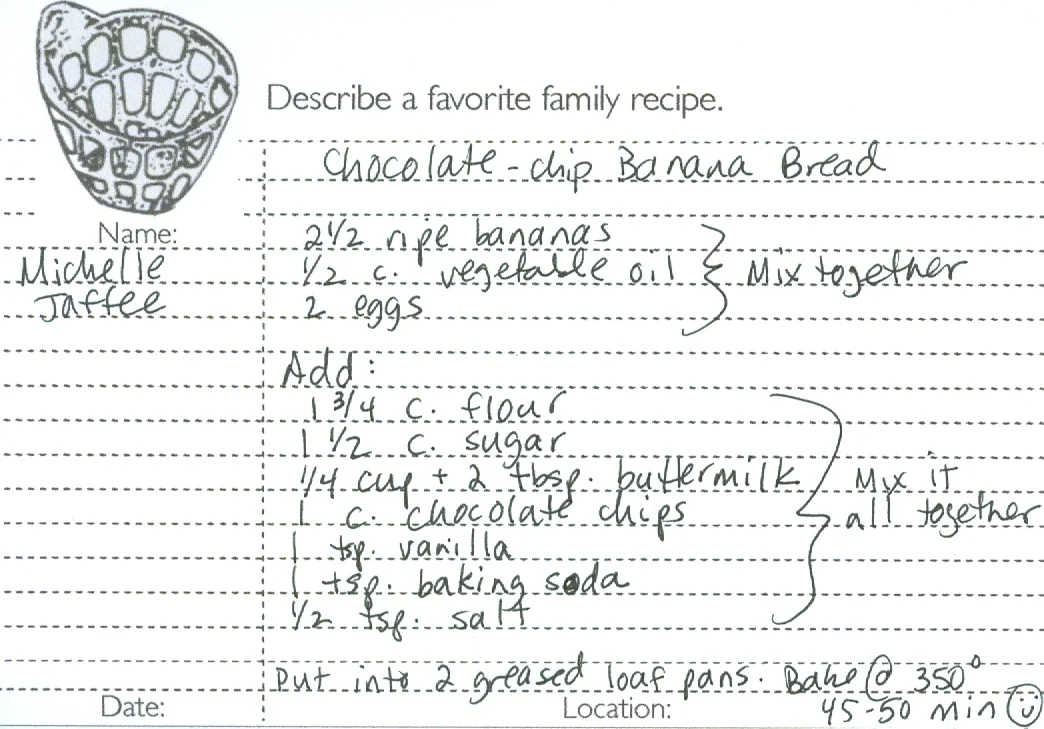 Describe a favorite family recipe.
Chocolate-chip Banana Bread
Name:
Michelle
Jaffee
2 1/2 ripe bananas
1/2 c. vegetable oil
2 eggs
Mix together
Add:
1 3/4 c. flour
1 1/2 c. sugar
1/4 cup + 2 tbsp. buttermilk
1 c. chocolate chips
1 tsp. vanilla
1 tsp. baking soda
1/2 tsp. salt
Mix it
all together
Put into 2 greased loaf pans. Bake @ 350°
45-50 min
Date:
Location: